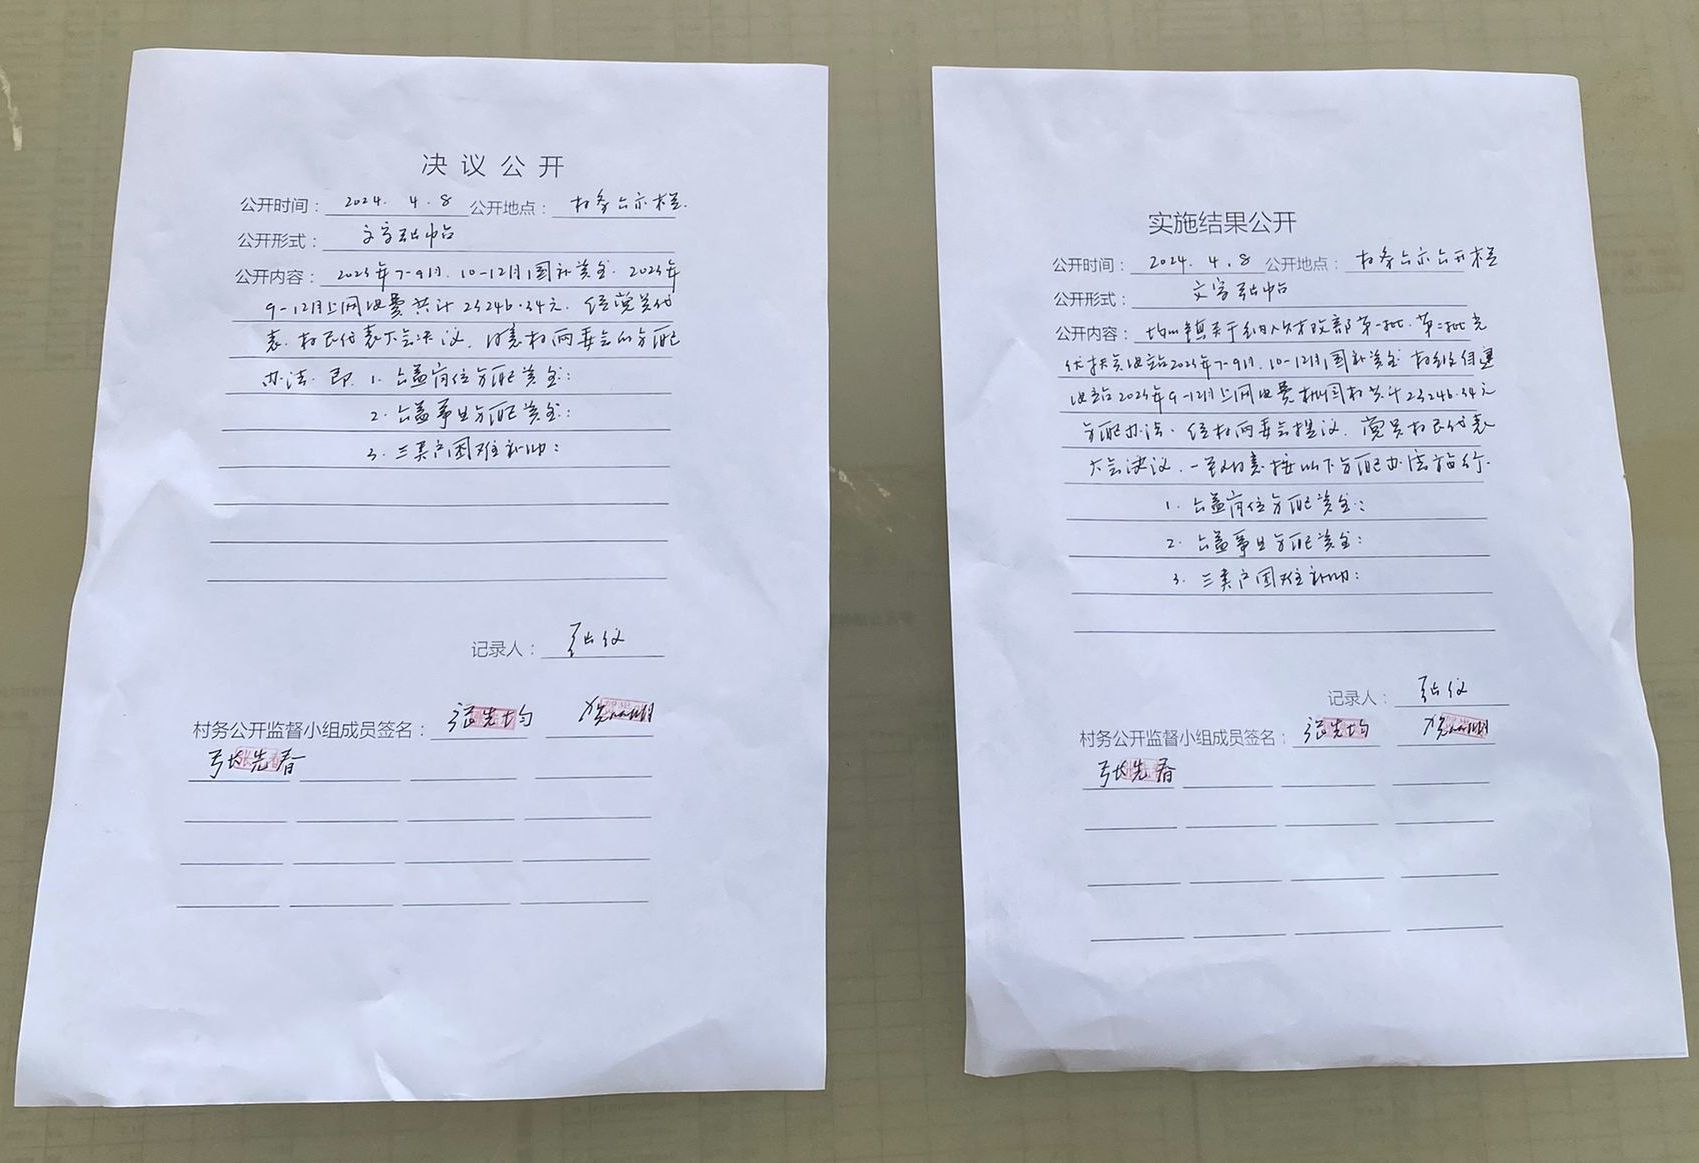 决议公开
公开时间：2024.4.8 公开地点：村务公示栏.
公开形式：文字张帖
公开内容：2023年7-9月.10-12月国补资金.2023年
9-12月上网电费共计23246.34元.经党员代
表.村民代表大会决议.同意村两委会的分配
办法.即.1.公益岗位分配资金：
2.公益事业分配资金：
3.三类户困难补助：
记录人：张仪
村务公开监督小组成员签名：张先均
张先春
实施结果公开
公开时间：2024.4.8 公开地点：村务公示公开栏
公开形式：文字张帖
公开内容：均川镇关于纳入财政部第一批.第二批光
伏扶贫电站2023年7-9月.10-12月国补资金 村级自建
电站2023年9-12月上网电费 村共计23246.34元
分配办法.经村两委会提议.党员村民代表
大会决议.一致同意按以下分配办法施行.
1.公益岗位分配资金：
2.公益事业分配资金：
3.三类户困难补助：
记录人：张仪
村务公开监督小组成员签名：张先均
张先春